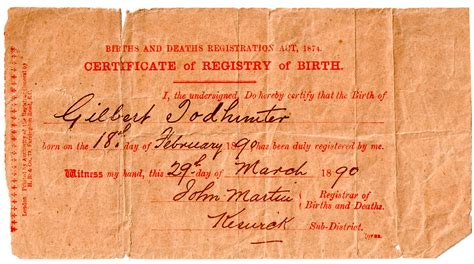 BIRTHS AND DEATHS REGISTRATION ACT, 1874.
CERTIFICATE of REGISTRY of BIRTH.
I, the undersigned, Do hereby certify that the Birth of
Gilbert Todhunter
born on the 18th day of February 1890 has been duly registered by me.
Witness my hand, this 29th day of March 1890
John Martin Registrar of Births and Deaths.
Keswick Sub-District.